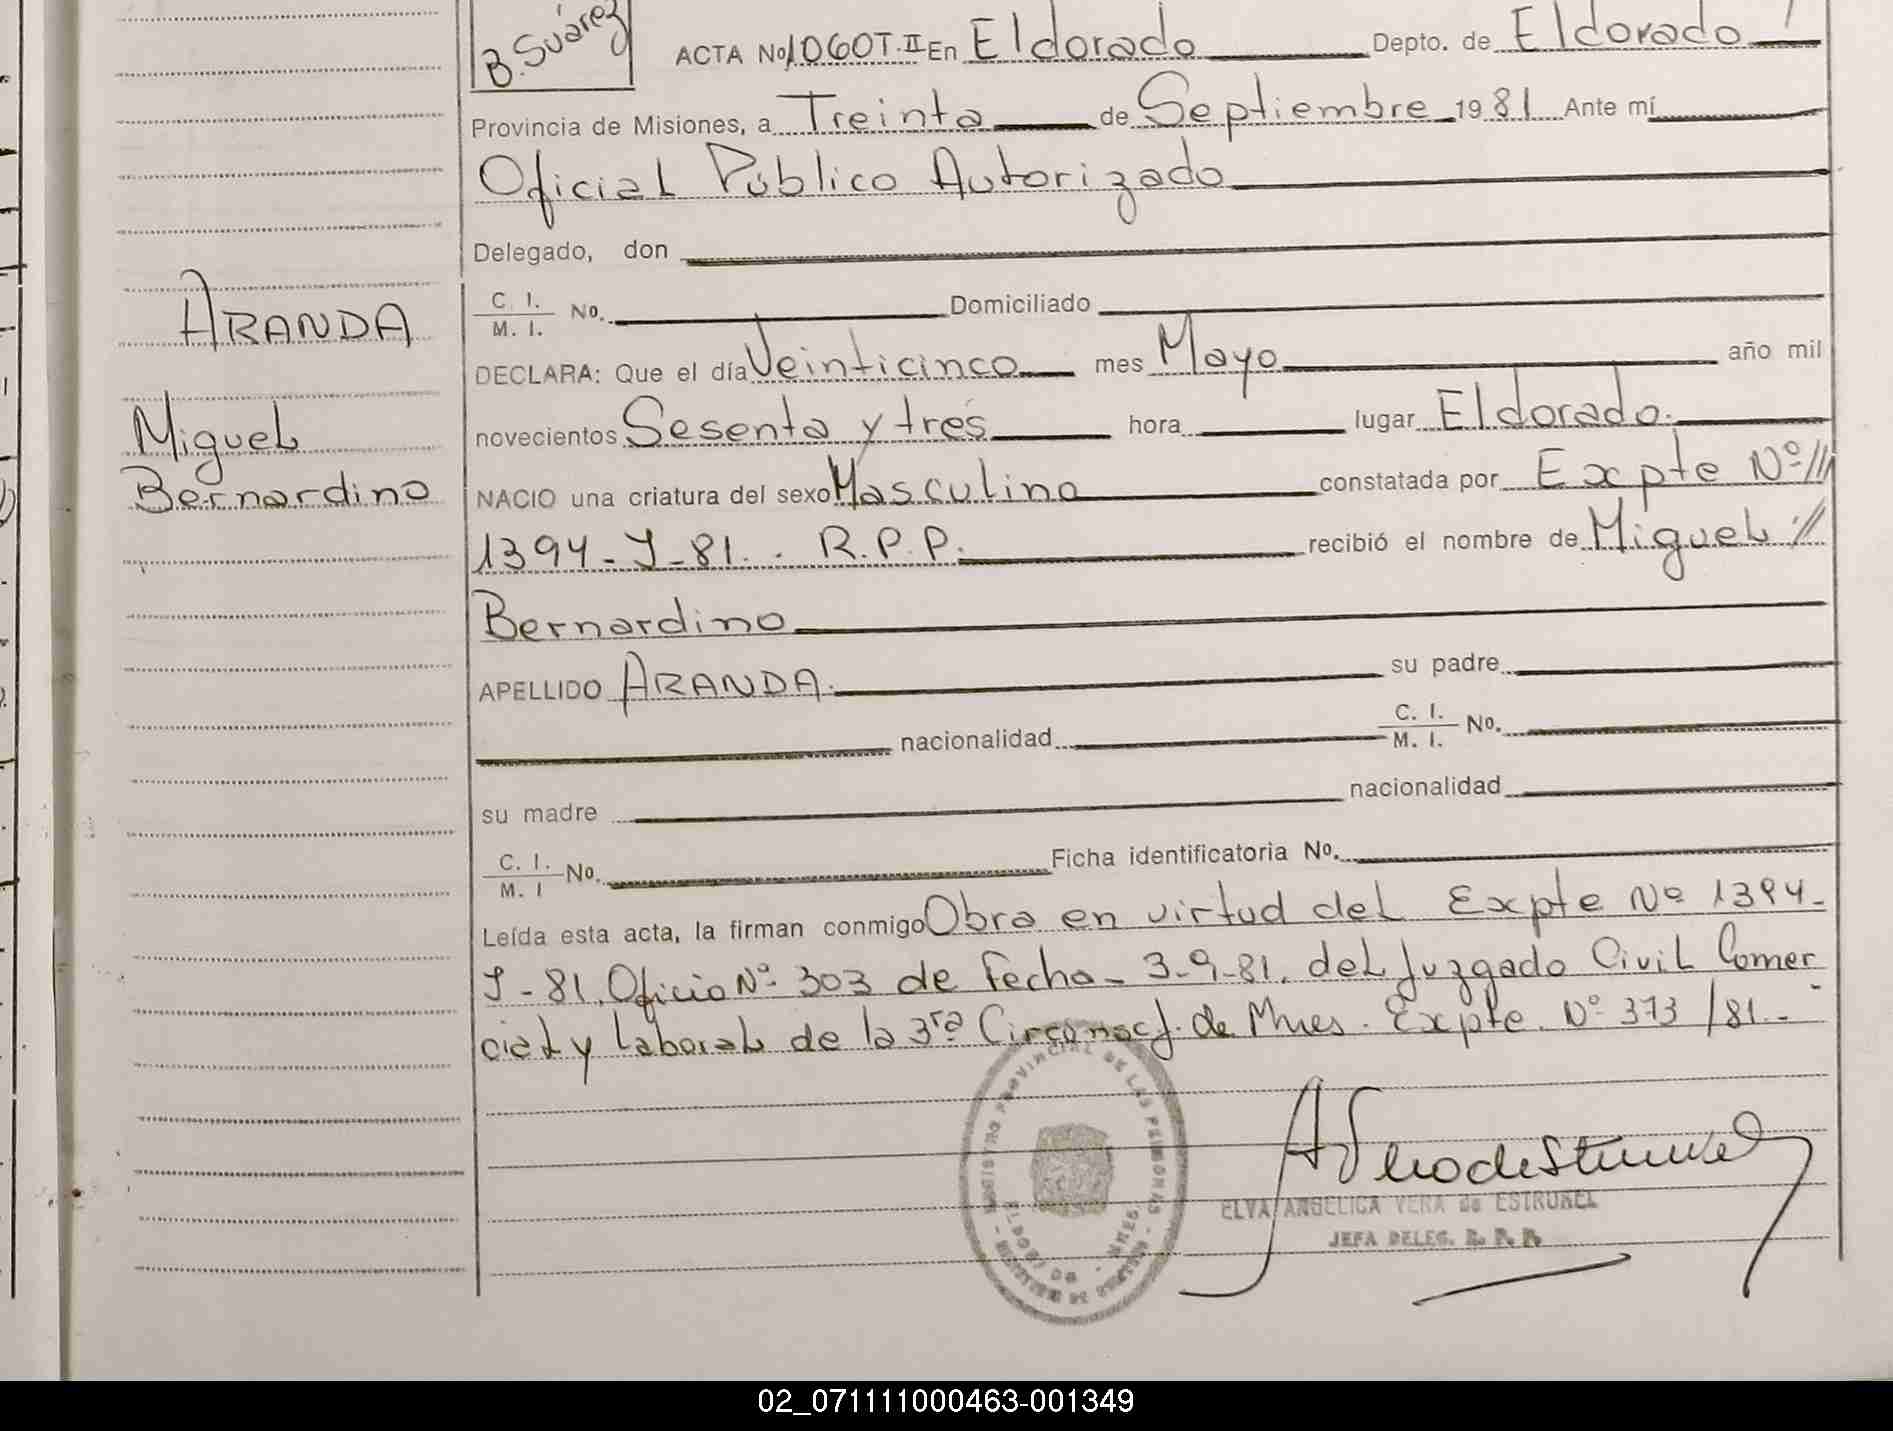 B. Suárez
ACTA No. 1060 T. II En Eldorado Depto. de Eldorado
Provincia de Misiones, a Treinta de Septiembre 1981 Ante mí
Oficial Público Autorizado
Delegado, don
C. I. / M. I. No. Domiciliado
ARANDA
DECLARA: Que el día Veinticinco mes Mayo año mil
Miguel
novecientos Sesenta y tres hora lugar Eldorado.
Bernardino
NACIO una criatura del sexo Masculino constatada por Expte Nº //
1394-J-81.. R.P.P. recibió el nombre de Miguel //
Bernardino
APELLIDO ARANDA. su padre
nacionalidad C. I. / M. I. No.
su madre nacionalidad
C. I. / M. I No. Ficha identificatoria No.
Leída esta acta, la firman conmigo Obra en virtud del Expte Nº 1394-
J-81. Oficio Nº 303 de Fecha- 3-9-81. del Juzgado Civil Comer
cial y Laboral de la 3ra Circonscj. de Mnes. Expte. Nº 373/81.-
REGISTRO PROVINCIAL DE LAS PERSONAS
ELDORADO
MNES.
ELVA ANGELICA VERA de ESTRUBEL
JEFA DELEG. R. P. P.
02_071111000463-001349